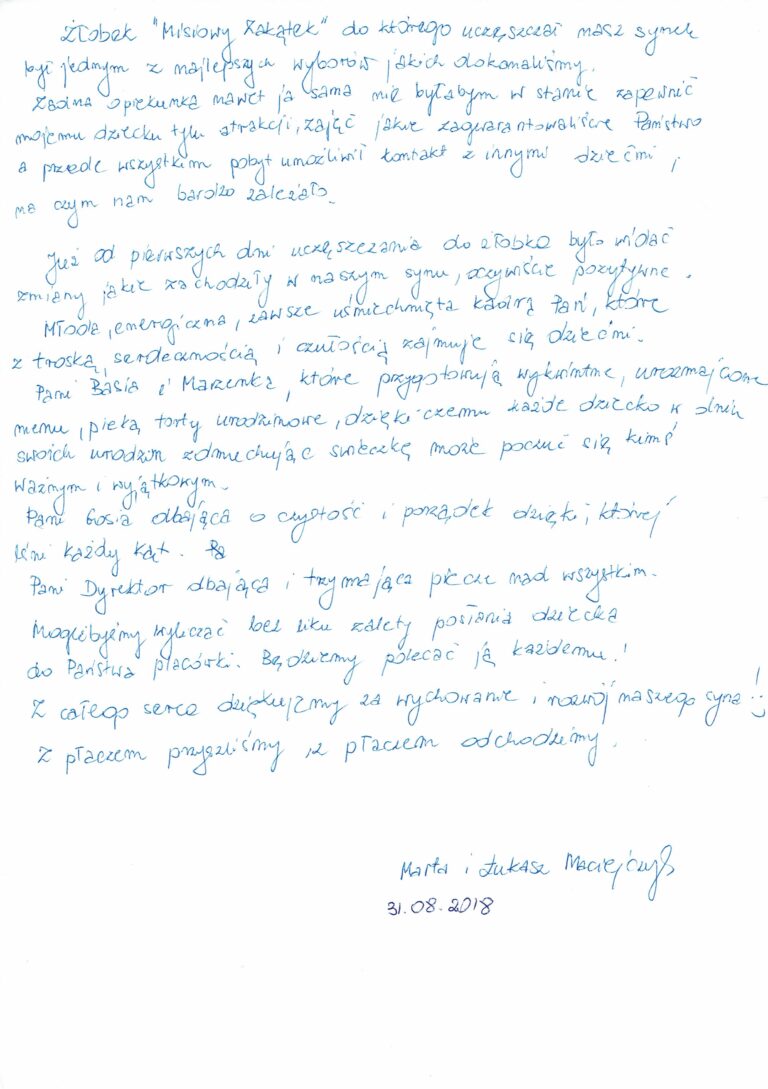 Żłobek "Misiowy Zakątek" do którego uczęszczał nasz synek
był jednym z najlepszych wyborów jakich dokonaliśmy.
Żadna opiekunka nawet ja sama nie byłabym w stanie zapewnić
mojemu dziecku tylu atrakcji, zajęć jakie zagwarantowaliście Państwo
a przede wszystkim pobyt umożliwił kontakt z innymi dziećmi,
na czym nam bardzo zależało.
Już od pierwszych dni uczęszczania do żłobka było widać
zmiany jakie zachodziły w naszym synu, oczywiście pozytywne.
Młoda, energiczna, zawsze uśmiechnięta kadra Pań, które
z troską, serdecznością i czułością zajmuje się dziećmi.
Pani Basia i Marzenka, które przygotowują wykwintne, urozmajcone
menu, pieką torty urodzinowe, dzięki czemu każde dziecko w dniu
swoich urodzin zdmuchując świeczkę może poczuć się kimś
ważnym i wyjątkowym.
Pani Gosia dbająca o czystość i porządek dzięki, której
lśni każdy kąt.
Pani Dyrektor dbająca i trzymająca piecze nad wszystkim.
Moglibyśmy wyliczać bez liku zalety posłania dziecka
do Państwa placówki. Będziemy polecać ją każdemu!
Z całego serca dziękujemy za wychowanie i rozwój naszego syna!
Z płaczem przyszliśmy i z płaczem odchodzimy.
Marta i Łukasz Maciejczyk
31.08.2018